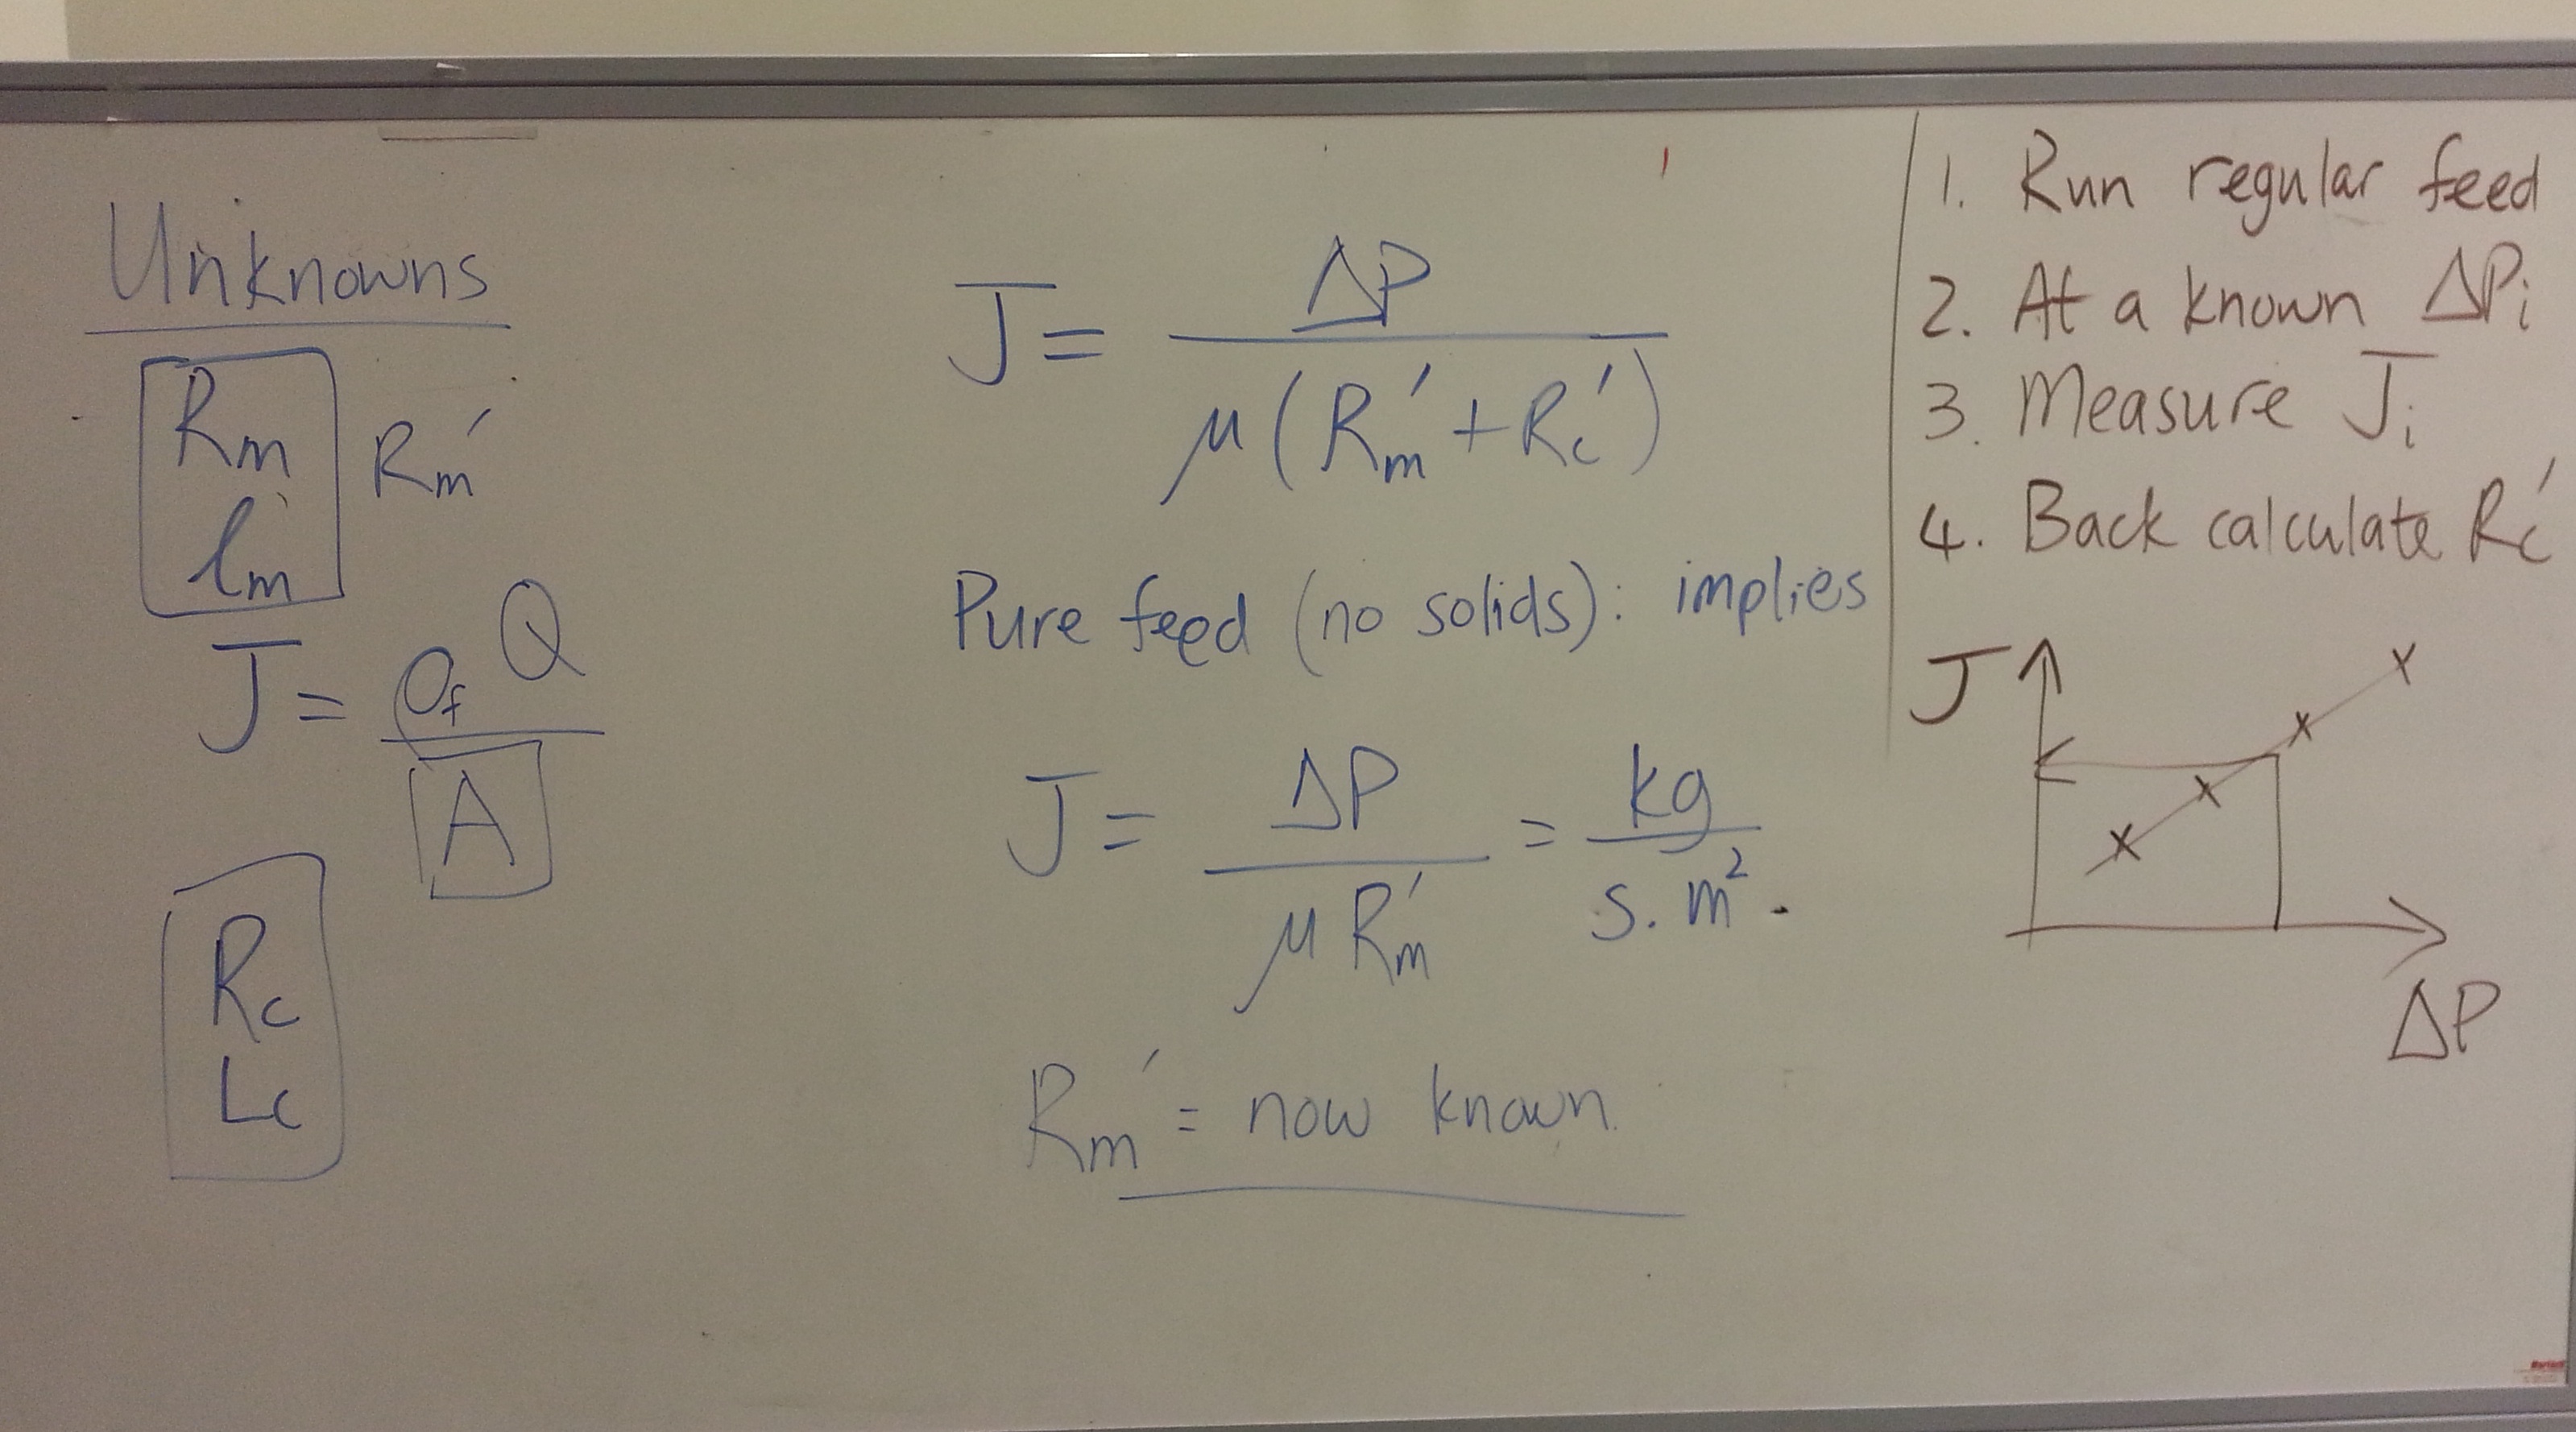 Unknowns
Rm
lm
Rm′
J = ρf Q
A
Rc
Lc
J = ΔP
μ(Rm′ + Rc′)
Pure feed (no solids): implies
J = ΔP = kg
μ Rm′ s. m².
Rm′ = now known
1. Run regular feed
2. At a known ΔPi
3. Measure Ji
4. Back calculate Rc′
J
ΔP